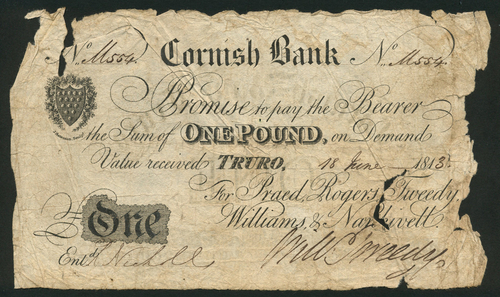 No. M554. Cornish Bank No. M554.
I Promise to pay the Bearer
the Sum of ONE POUND, on Demand
Value received TRURO, 18 June 1813
For Praed, Rogers, Tweedy
Williams, & Nankivell.
£ One
Entd. Willm Tweedy